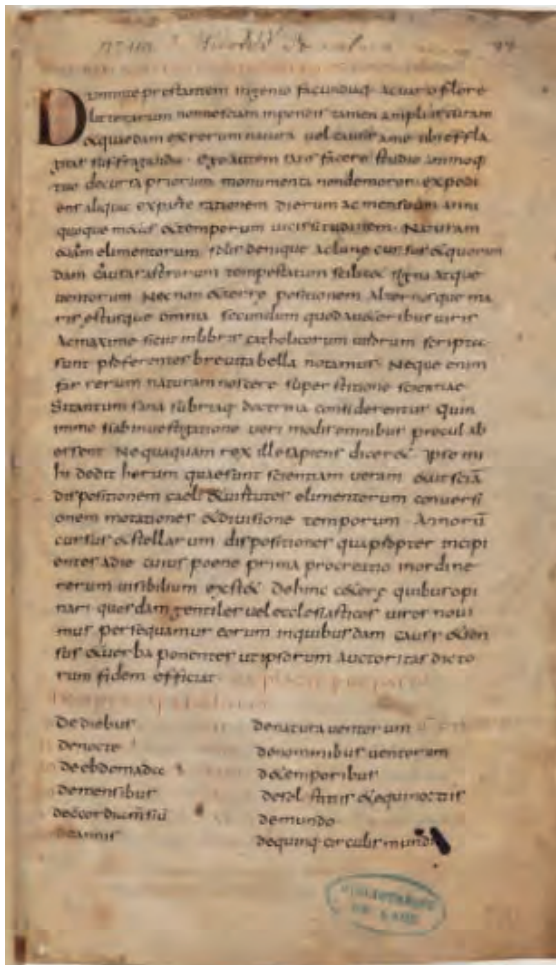 Dum te prestantem ingenio facundiaq; ac uario flore
litterarum non nesciam inpendis tamen amplius curam
& quaedam ex rerum natura uel causis a me tibi effla
gitas suffraganda. Ego autem satisfacere studio animoq;
tuo decursa priorum monumenta non demoror expedi
ens aliqua ex parte rationem dierum ac mensuum anni
quoque metas & temporum uicissitudinem. Naturam
&iam elimentorum. solis denique ac lunę cursus & quorun
dam causas astrorum tempestatum scilic& signa atque
uentorum. Nec non & terrę positionem alternosque ma
ris estusque omnia secundum quod a u&eribus uiris
ac maxime sicut in libris catholicorum uirorum scripta
sunt proferentes breui tabella notamus. Neque enim
rerum naturam noscere superstitiosae scientiae
Si tantum sana sobriaq; doctrina considerentur Quin
immo si ab inuestigatione ueri modis omnibus procul ab
essent Nequaquam rex ille sapiens dicer& ipse mi
hi dedit horum quae sunt scientiam ueram ut sciā
dispositionem caeli & uirtutes elimentorum conuersi
onem motationes & diuisione temporum. Annorū
cursus & stellarum dispositiones quapropter incipi
entes a die cuius poene prima procreatio in ordine
rerum uisibilium exst& Dehinc c&era quibus opi
nari quosdam gentiles uel ecclesiasticos uiros noui
mus persequamur eorum in quibusdam causis & sen
sus & uerba ponentes ut ipsorum auctoritas dicto
rum fidem efficiat
De diebus
De natura uentorum
De nocte
De nominibus uentorum
De ebdomada
De temporibus
De mensibus
De solstitiis & equinoctiis
De mundo
De annis
De quinq; circulis mundi
BIBLIOTHEQUE
DE LAON